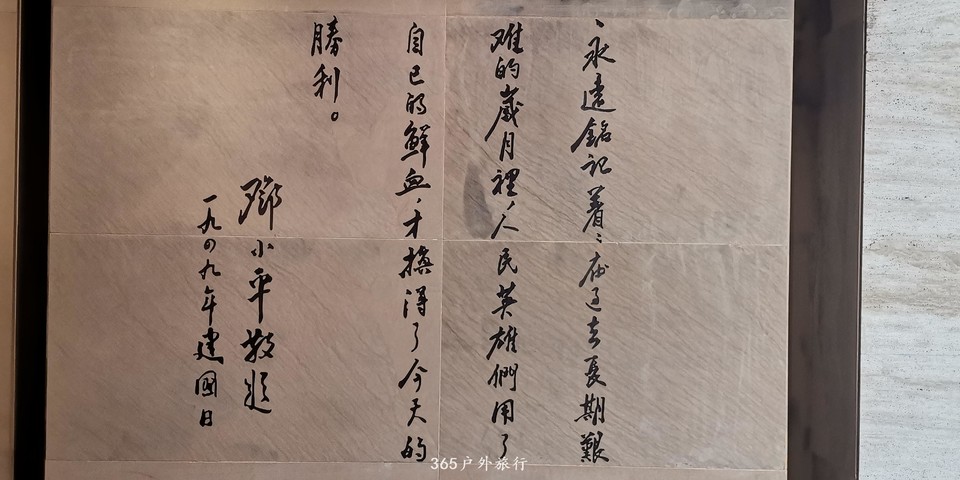 永远铭记着：在过去長期艱
难的歲月裡，人民英雄們用了
自己的鲜血，才换得了今天的
勝利。
鄧小平敬题
一九四九年建國日
365户外旅行